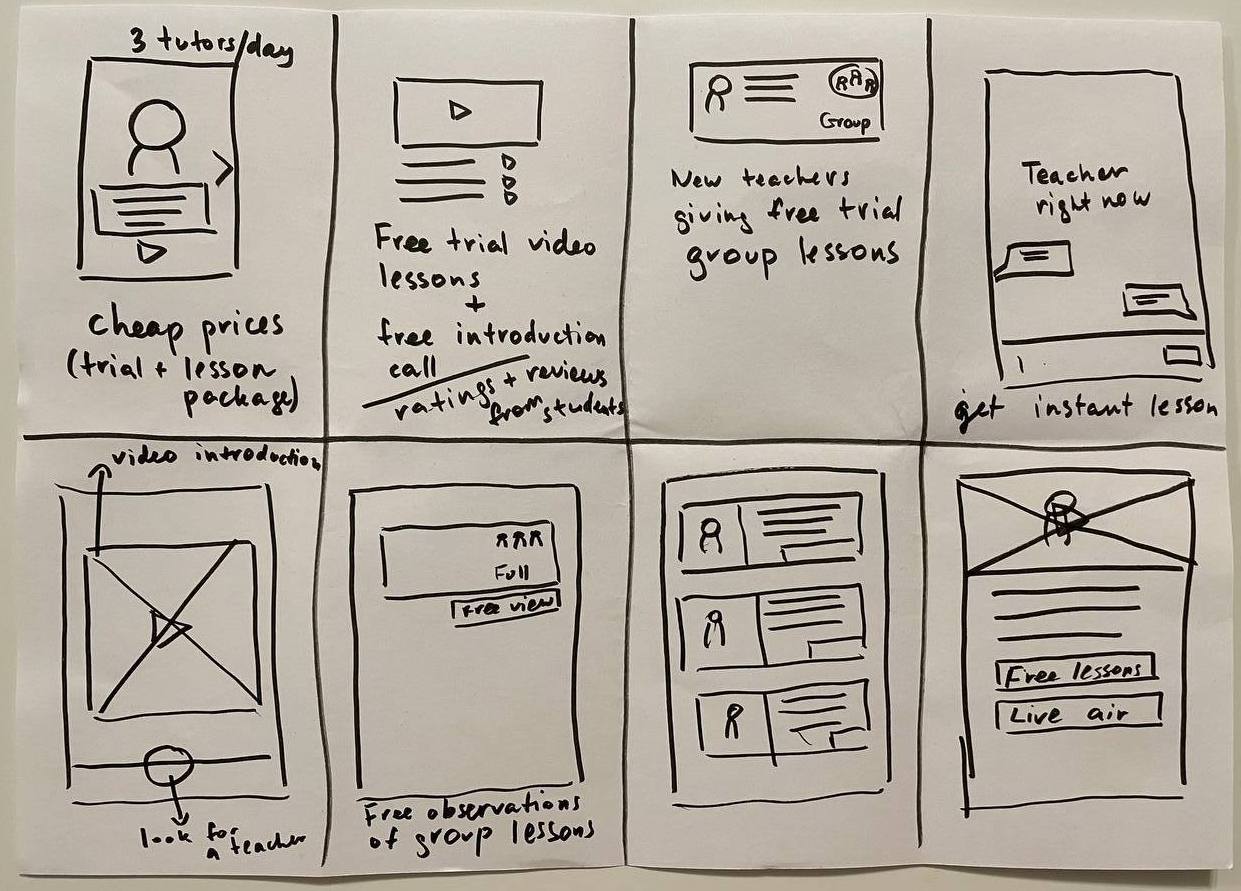 3 tutors/day
cheap prices
(trial + lesson
package)
Free trial video
lessons
+
free introduction
call
ratings + reviews
from students
Group
New teachers
giving free trial
group lessons
Teacher
right now
get instant lesson
video introduction
look for
a teacher
RRR
Full
Free view
Free observations
of group lessons
Free lessons
Live air